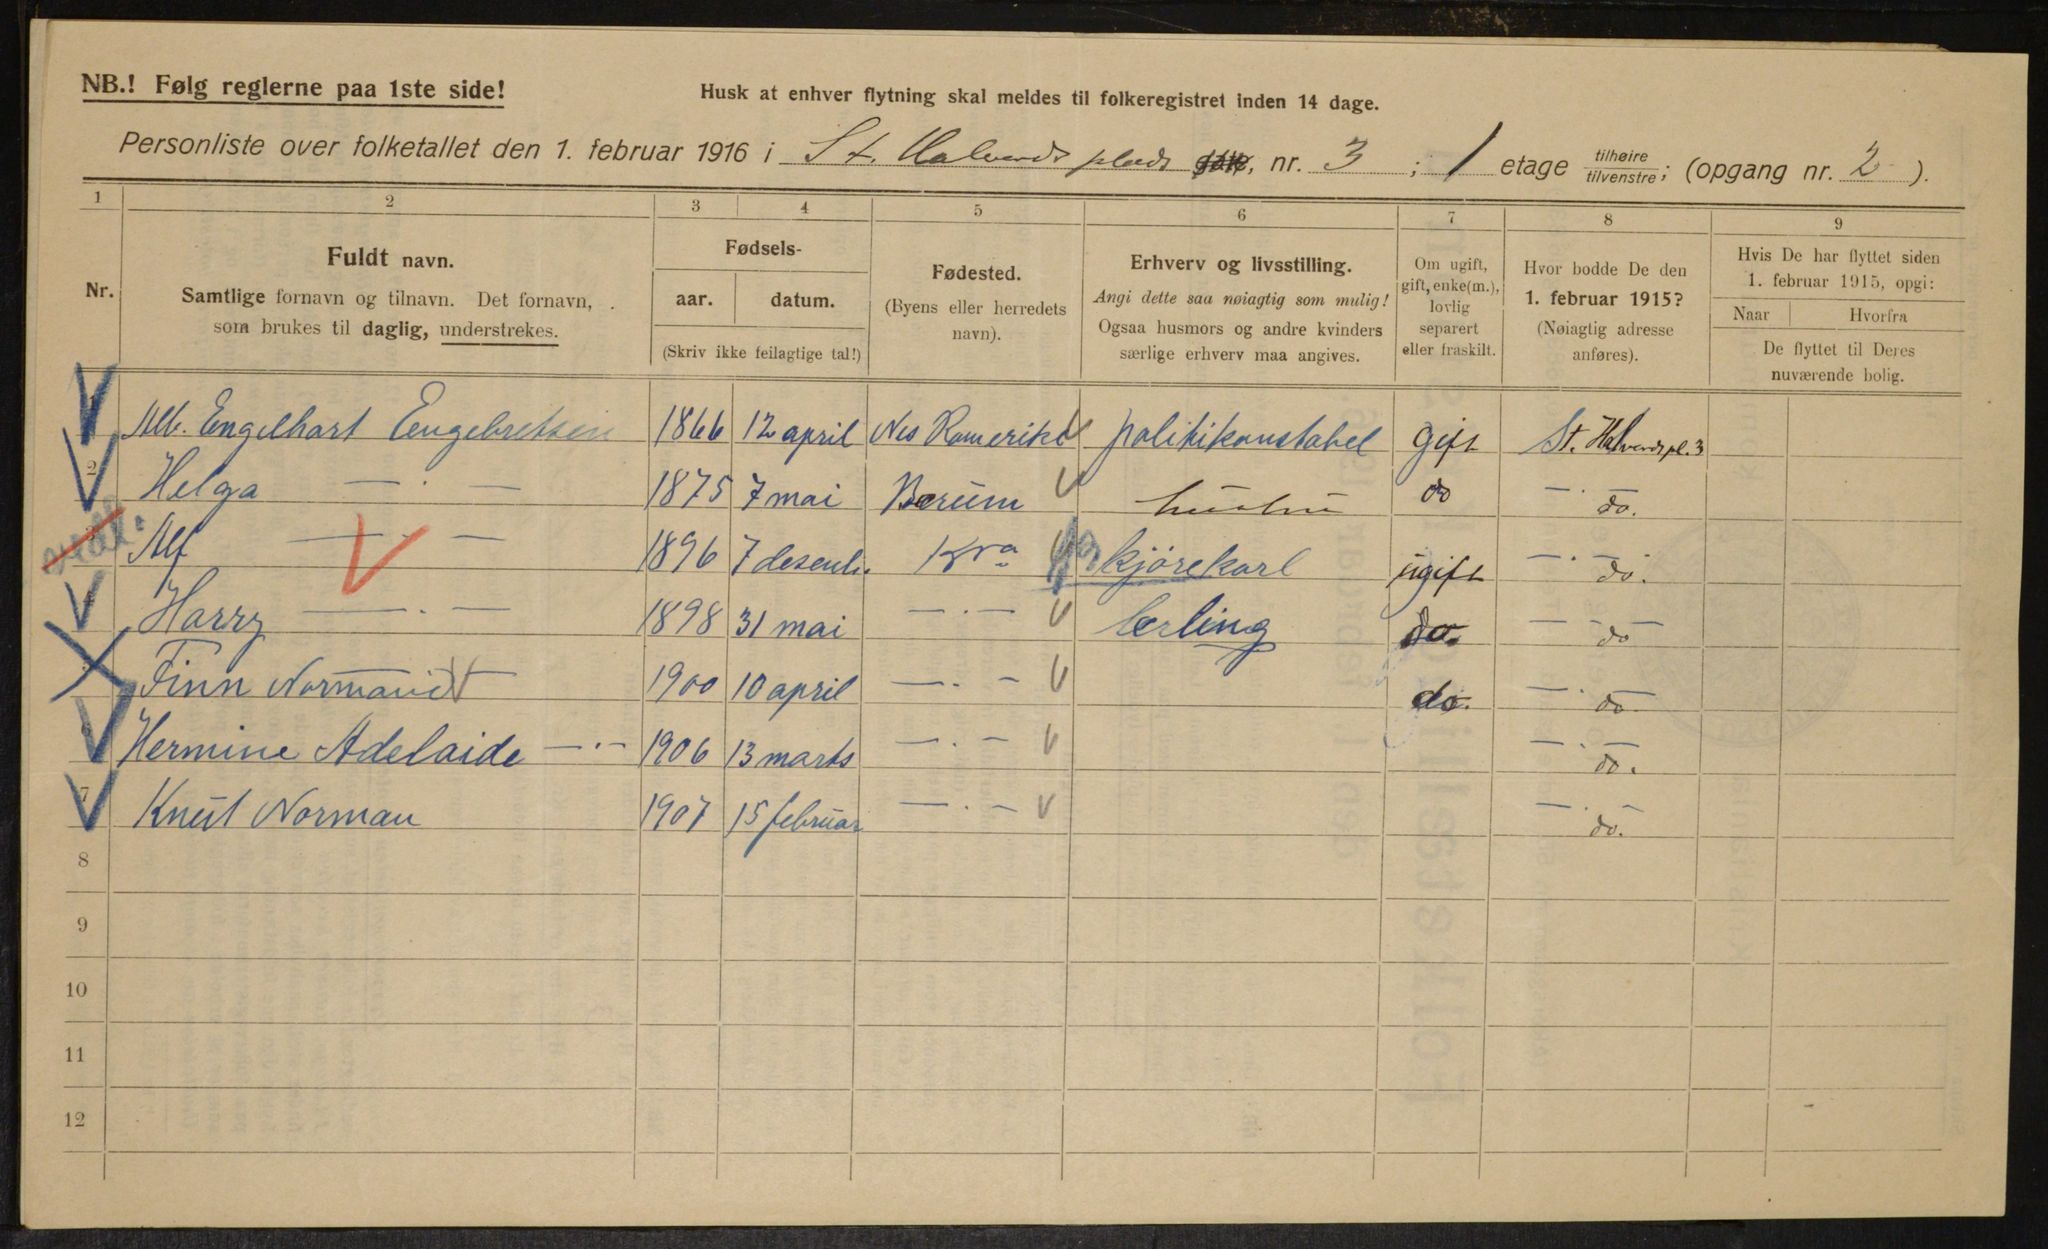 NB.! Følg reglerne paa 1ste side!
Husk at enhver flytning skal meldes til folkeregistret inden 14 dage.
Personliste over folketallet den 1. februar 1916 i St. Halvards plads gate, nr. 3 ; 1 etage tilhøire tilvenstre; (opgang nr. 2 ).
1 2 3 4 5 6 7 8 9
Nr.
Fuldt navn.
Samtlige fornavn og tilnavn. Det fornavn,
som brukes til daglig, understrekes.
Fødsels-
aar. datum.
(Skriv ikke feilagtige tal!)
Fødested.
(Byens eller herredets
navn).
Erhverv og livsstilling.
Angi dette saa nøiagtig som mulig!
Ogsaa husmors og andre kvinders
særlige erhverv maa angives.
Om ugift,
gift, enke(m.),
lovlig
separert
eller fraskilt.
Hvor bodde De den
1. februar 1915?
(Nøiagtig adresse
anføres).
Hvis De har flyttet siden
1. februar 1915, opgi:
Naar Hvorfra
De flyttet til Deres
nuværende bolig.
1 Alb. Engelhart Engebretsen 1866 12 april Nes Romerike politikonstabel gift St. Halvardspl. 3
2 Helga — . — 1875 7 mai Bærum hustru do — . do.
Alf — . — 1896 7 desemb. Kra kjørekarl ugift — . do.
Harry — . — 1898 31 mai — . — Lærling do. — do
Finn Normann 1900 10 april — . — do. — . do
6 Hermine Adelaide — . — 1906 13 marts — . — — . do.
7 Knut Norman 1907 15 februar — . — — . do.
8
9
10
11
12